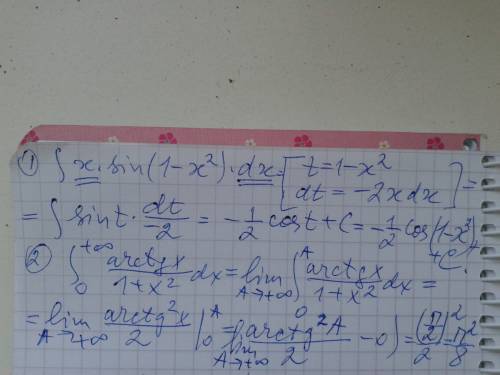 ① ∫ x·sin(1-x²)·dx = [t=1-x²
dt=-2xdx] =
= ∫ sint·dt/-2 = -1/2 cost+C = -1/2 cos(1-x²)+C.
② ∫₀^+∞ arctgx/1+x² dx = lim A→+∞ ∫₀^A arctgx/1+x² dx =
= lim A→+∞ arctg²x/2 |₀^A = lim A→+∞ (arctg²A/2 - 0) = (π/2)²/2 = π²/8